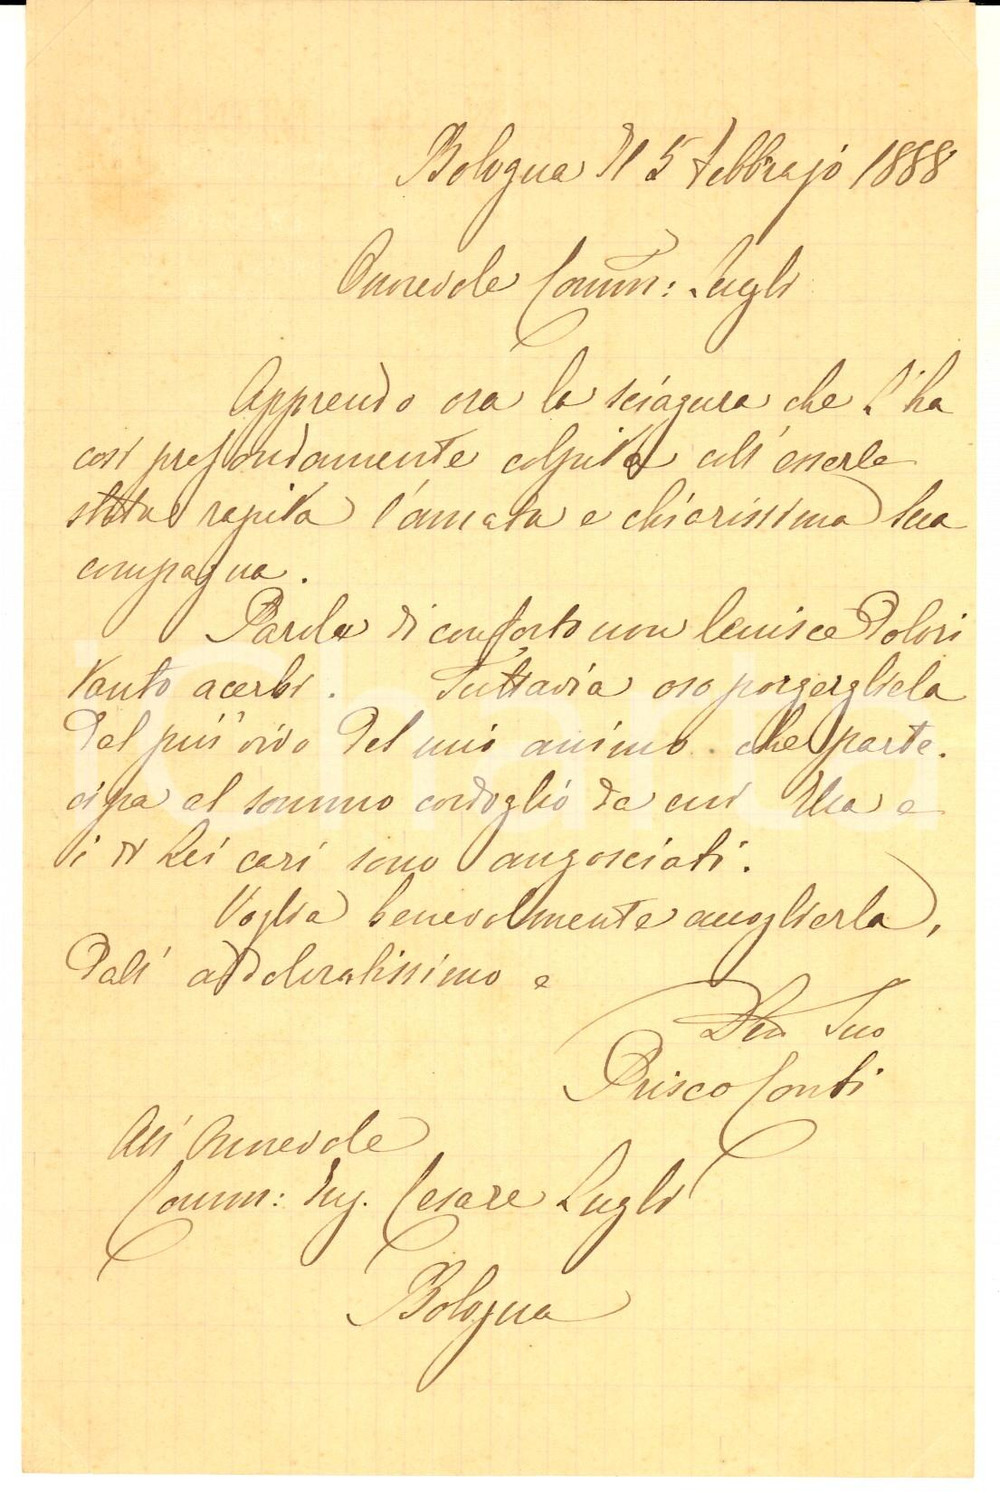 Bologna il 5 Febbrajo 1888
Onorevole Comm: Lugli
Apprendo ora la sciagura che L'ha
così profondamente colpita coll'esserle
stata rapita l'amata e chiarissima Sua
compagna.
Parola di conforto non lenisce dolori
tanto acerbi. Tuttavia oso porgergliela
dal più vivo del mio animo che parte-
cipa al sommo cordoglio da cui Ella e
i di Lei cari sono angosciati.
Voglia benevolmente accoglierla,
dall' addoloratissimo e
Suo
Prisco Conti
All'Onorevole
Comm: Ing. Cesare Lugli
Bologna